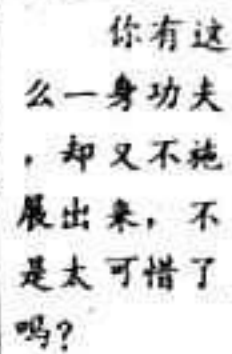 你有这
么一身功夫
，却又不施
展出来，不
是太可惜了
吗？